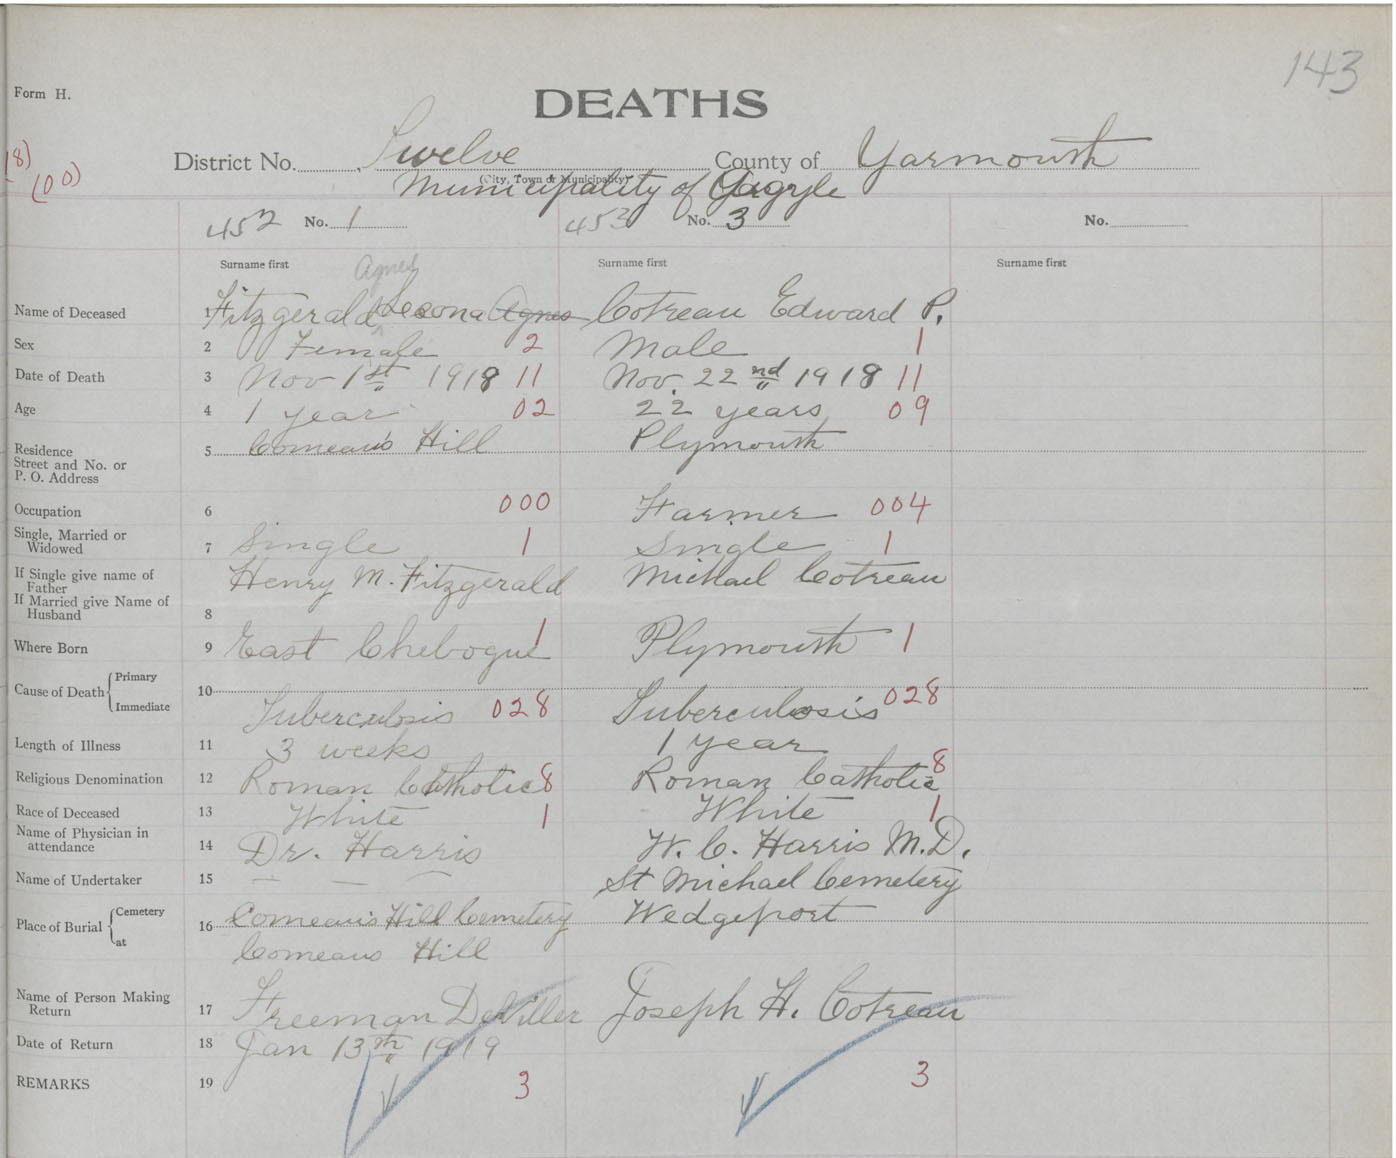 143
Form H.
DEATHS
(8)
(00)
District No. Twelve County of Yarmouth
(City, Town or Municipality)
Municipality of Argyle
452 No. 1 453 No. 3 No.
Surname first Surname first Surname first
Agnes
Name of Deceased 1 Fitzgerald Leona Agnes Cotreau Edward P.
Sex 2 Female 2 Male 1
Date of Death 3 Nov 1st 1918 11 Nov. 22nd 1918 11
Age 4 1 year 02 22 years 09
Residence 5 Comeau's Hill Plymouth
Street and No. or
P. O. Address
Occupation 6 000 Farmer 004
Single, Married or
Widowed 7 Single 1 Single 1
If Single give name of
Father Henry M. Fitzgerald Michael Cotreau
If Married give Name of
Husband 8
Where Born 9 East Chebogue 1 Plymouth 1
Cause of Death Primary 10
Immediate Tuberculosis 028 Tuberculosis 028
Length of Illness 11 3 weeks 1 year
Religious Denomination 12 Roman Catholic 8 Roman Catholic 8
Race of Deceased 13 White 1 White 1
Name of Physician in
attendance 14 Dr. Harris W. C. Harris M.D.
Name of Undertaker 15 — — — St Michael Cemetery
Place of Burial Cemetery 16 Comeau's Hill Cemetery Wedgeport
at Comeaus Hill
Name of Person Making
Return 17 Freeman DeViller Joseph H. Cotreau
Date of Return 18 Jan 13th 1919
REMARKS 19 3 3